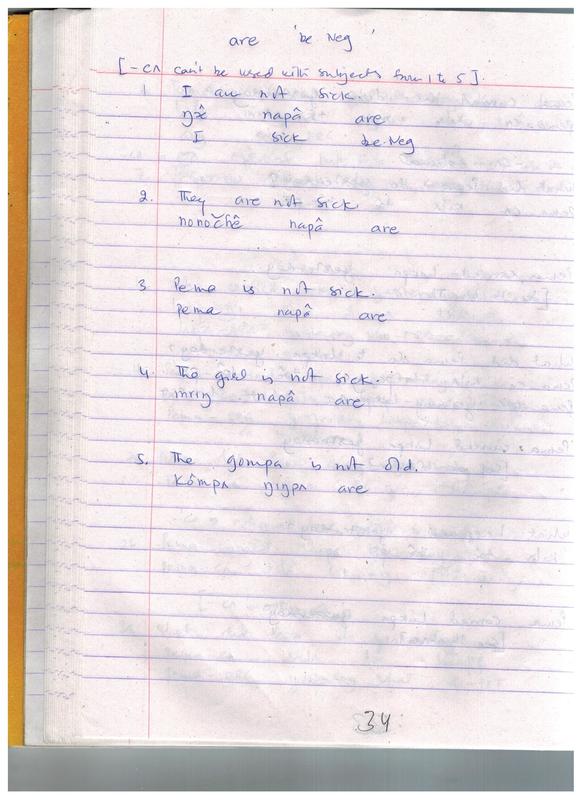 are 'be Neg'
[-cʌ can't be used with subjects from 1 to 5].
1 I am not sick.
napâ are
I sick be.Neg
2. They are not sick.
nonočhê napâ are
3 Pema is not sick.
pema napâ are
4. The girl is not sick.
mriŋ napâ are
5. The gompa is not old.
kômpʌ ŋiŋpʌ are
34